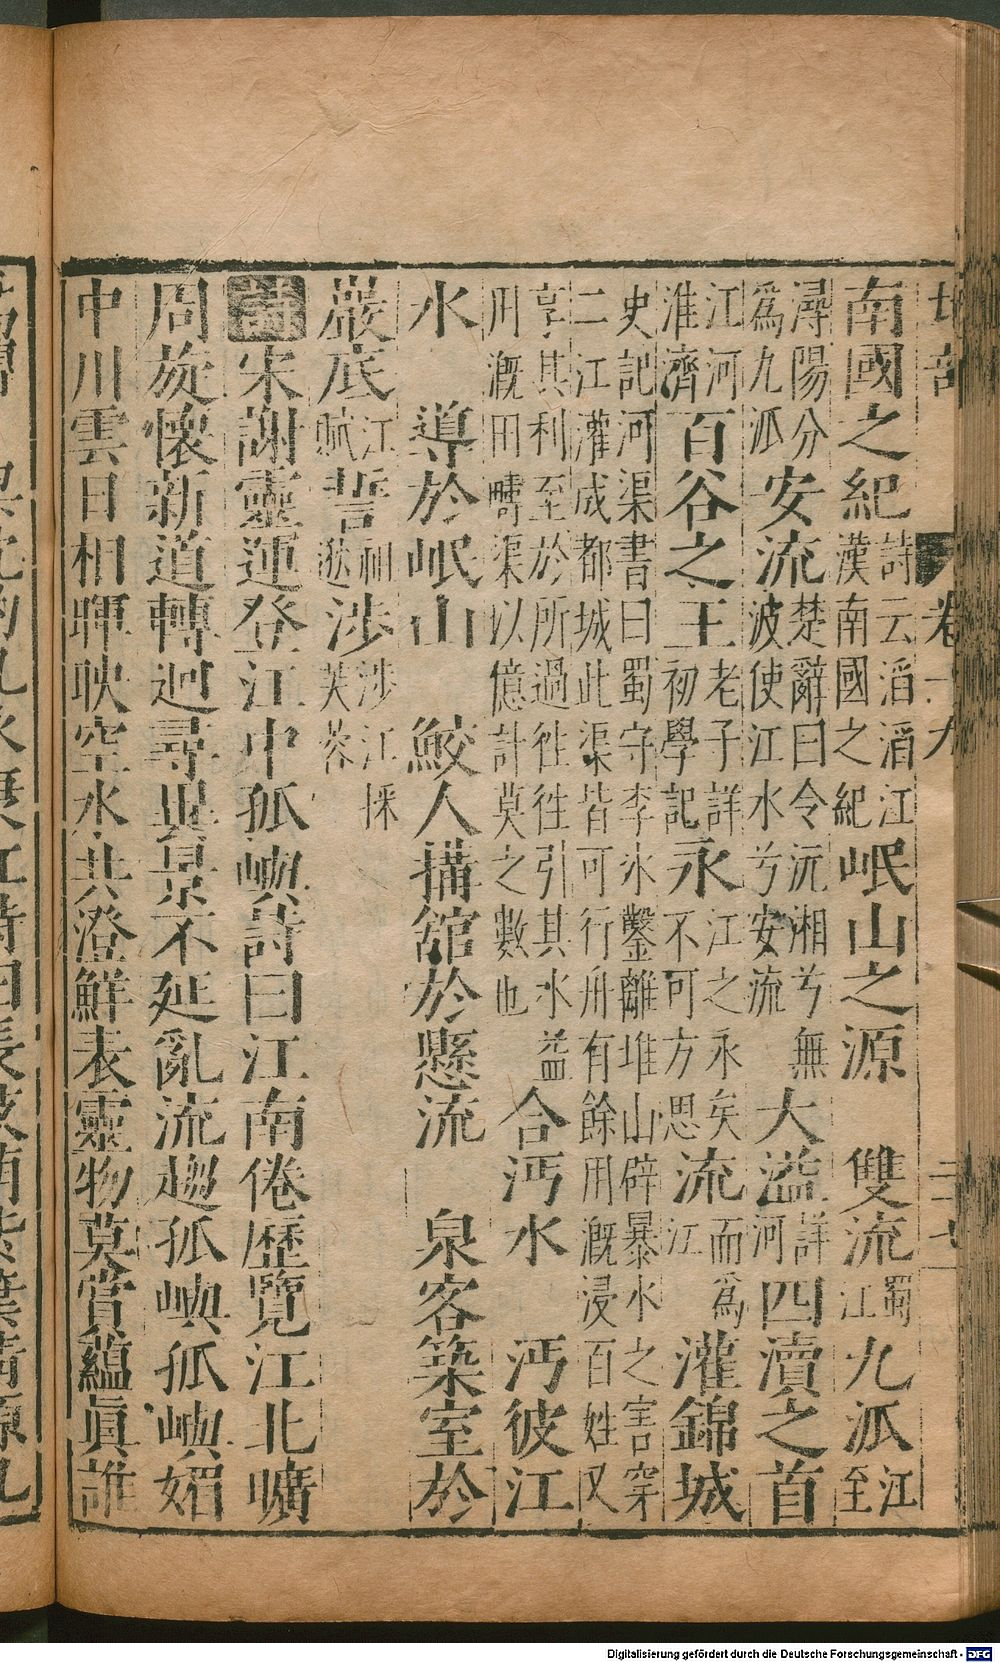 地部 卷
南國之紀詩云滔滔江漢南國之紀岷山之源 雙流蜀江九派江至
潯陽分為九派安流楚辭曰令沅湘兮無波使江水兮安流大溢詳河四瀆之首
江河淮濟百谷之王老子詳初學記永江之永矣不可方思流而為江灌錦城
史記河渠書曰蜀守李氷鑿離堆山辟暴水之害穿二江灌成都城此渠皆可行舟有餘用溉浸百姓又
亨其利至於所過往往引其水益用溉田疇渠以億計莫之數也合沔水 沔彼江
水 導於岷山 鮫人搆舘於懸流 泉客築室於
巖底江賦誓祖逖涉涉江採芙蓉
詩宋謝靈運登江中孤嶼詩曰江南倦歷覽江北曠
周旋懷新道轉迥尋異景不延亂流趨孤嶼孤嶼媚
中川雲日相暉映空水共澄鮮表靈物莫賞蘊眞誰
Digitalisierung gefördert durch die Deutsche Forschungsgemeinschaft - DFG